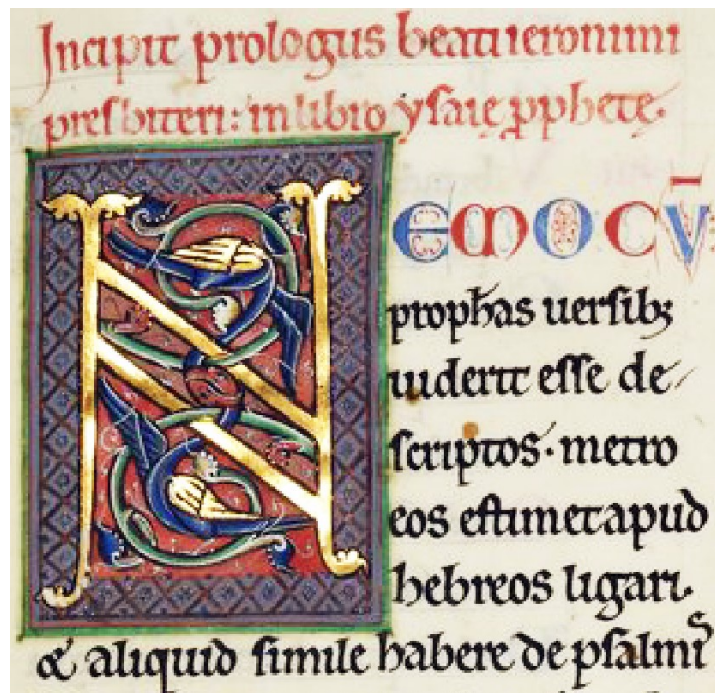 Incipit prologus beati ieronimi
presbiteri: in libro ysaię ꝓphete.
NEMO CV̅
prophas uersib;
uiderit esse de/
scriptos. metro
eos estimet apud
hebreos ligari.
& aliquid simile habere de psalmis